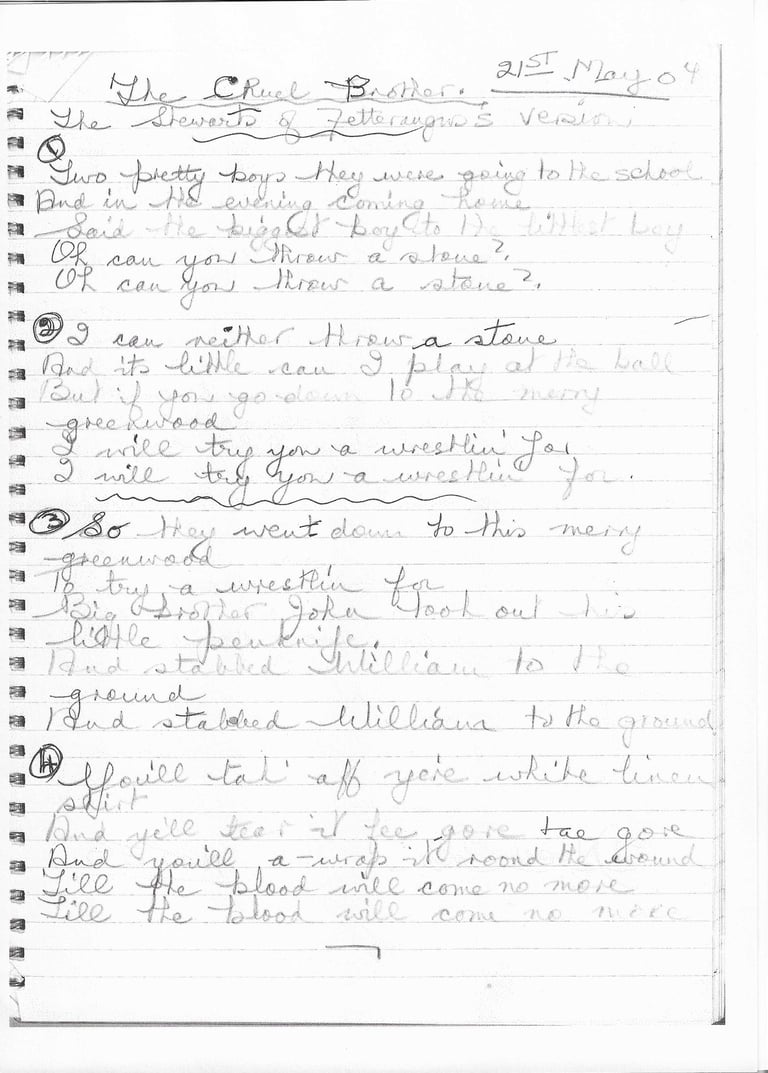 21ST May 04
The CRuel Brother.
The Stewarts of Fetterangus's version
1
Two pretty boys they were going to the school
And in the evening coming home
Said the biggest boy to the littlest boy
Oh can you throw a stone?.
Oh can you throw a stone?.
2 I can neither throw a stone
And its little can I play at the ball
But if you go down to the merry
greenwood
I will try you a wrestlin' for
I will try you a wrestlin' for.
3 So they went down to this merry
greenwood
To try a wrestlin for
Big brother John took out his
little penknife.
And stabbed William to the
ground
And stabbed William to the ground
4 You'll tak' aff yere white linen
shirt
And ye'll tear it fee gore tae gore
And you'll a-wrap it roond the wound
Till the blood will come no more
Till the blood will come no more